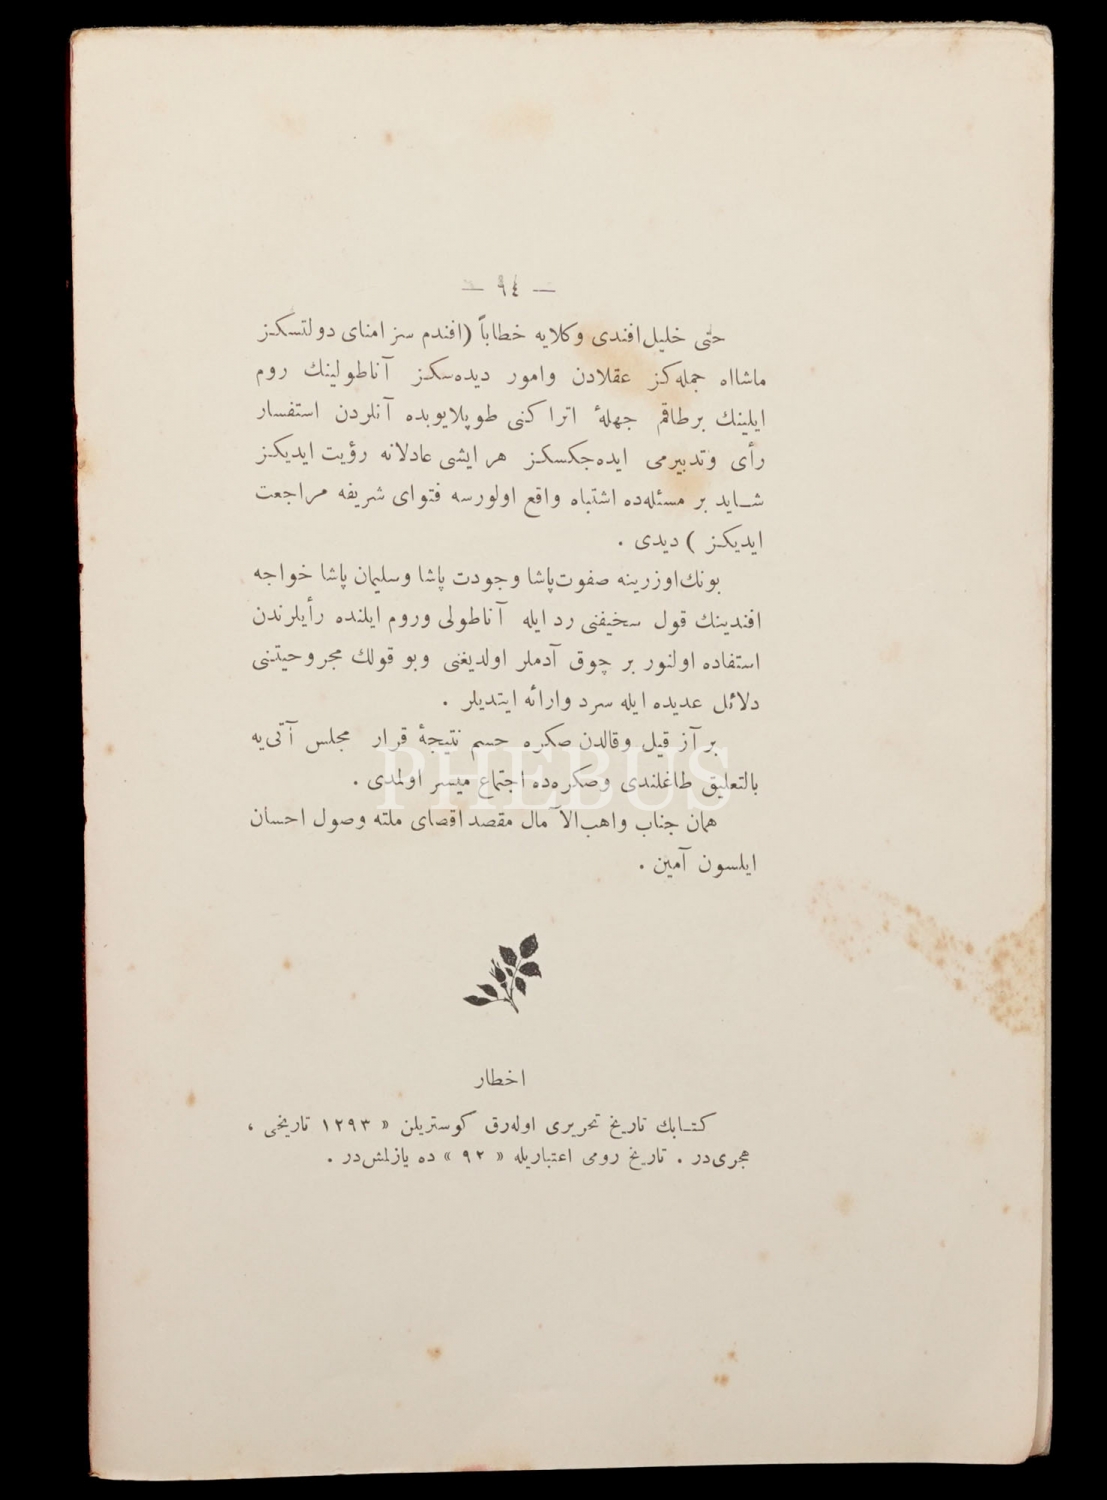 — ٩٤ —
حتی خلیل افندی وكلایه خطاباً (افندم سز امنای دولتسكز
ماشااه جمله كز عقلادن وامور دیده سكز آناطولینك روم
ایلینك برطاقم جهلۀ اتراكنی طوپلایوبده آنلردن استفسار
رأی وتدبیرمی ایده جكسكز هر ایشی عادلانه رؤیت ایدیكز
شاید بر مسئله ده اشتباه واقع اولورسه فتوای شریفه مراجعت
ایدیكز ) دیدی .
بونك اوزرینه صفوت پاشا وجودت پاشا وسلیمان پاشا خواجه
افندینك قول سخیفنی رد ایله آناطولی وروم ایلنده رأیلرندن
استفاده اولنور بر چوق آدملر اولدیغنی وبو قولك مجروحیتنی
دلائل عدیده ایله سرد وارائه ایتدیلر .
بر آز قیل وقالدن صكره حسم نتیجۀ قرار مجلس آتی یه
بالتعلیق طاغلندی وصكره ده اجتماع میسر اولمدی .
همان جناب واهب الآمال مقصد اقصای ملته وصول احسان
ایلسون آمین .
PHEBUS
اخطار
كتابك تاریخ تحریری اوله رق كوستریلن « ١٢٩٣ تاریخی ،
هجری در . تاریخ رومی اعتباریله « ٩٢ » ده یازلمش در .